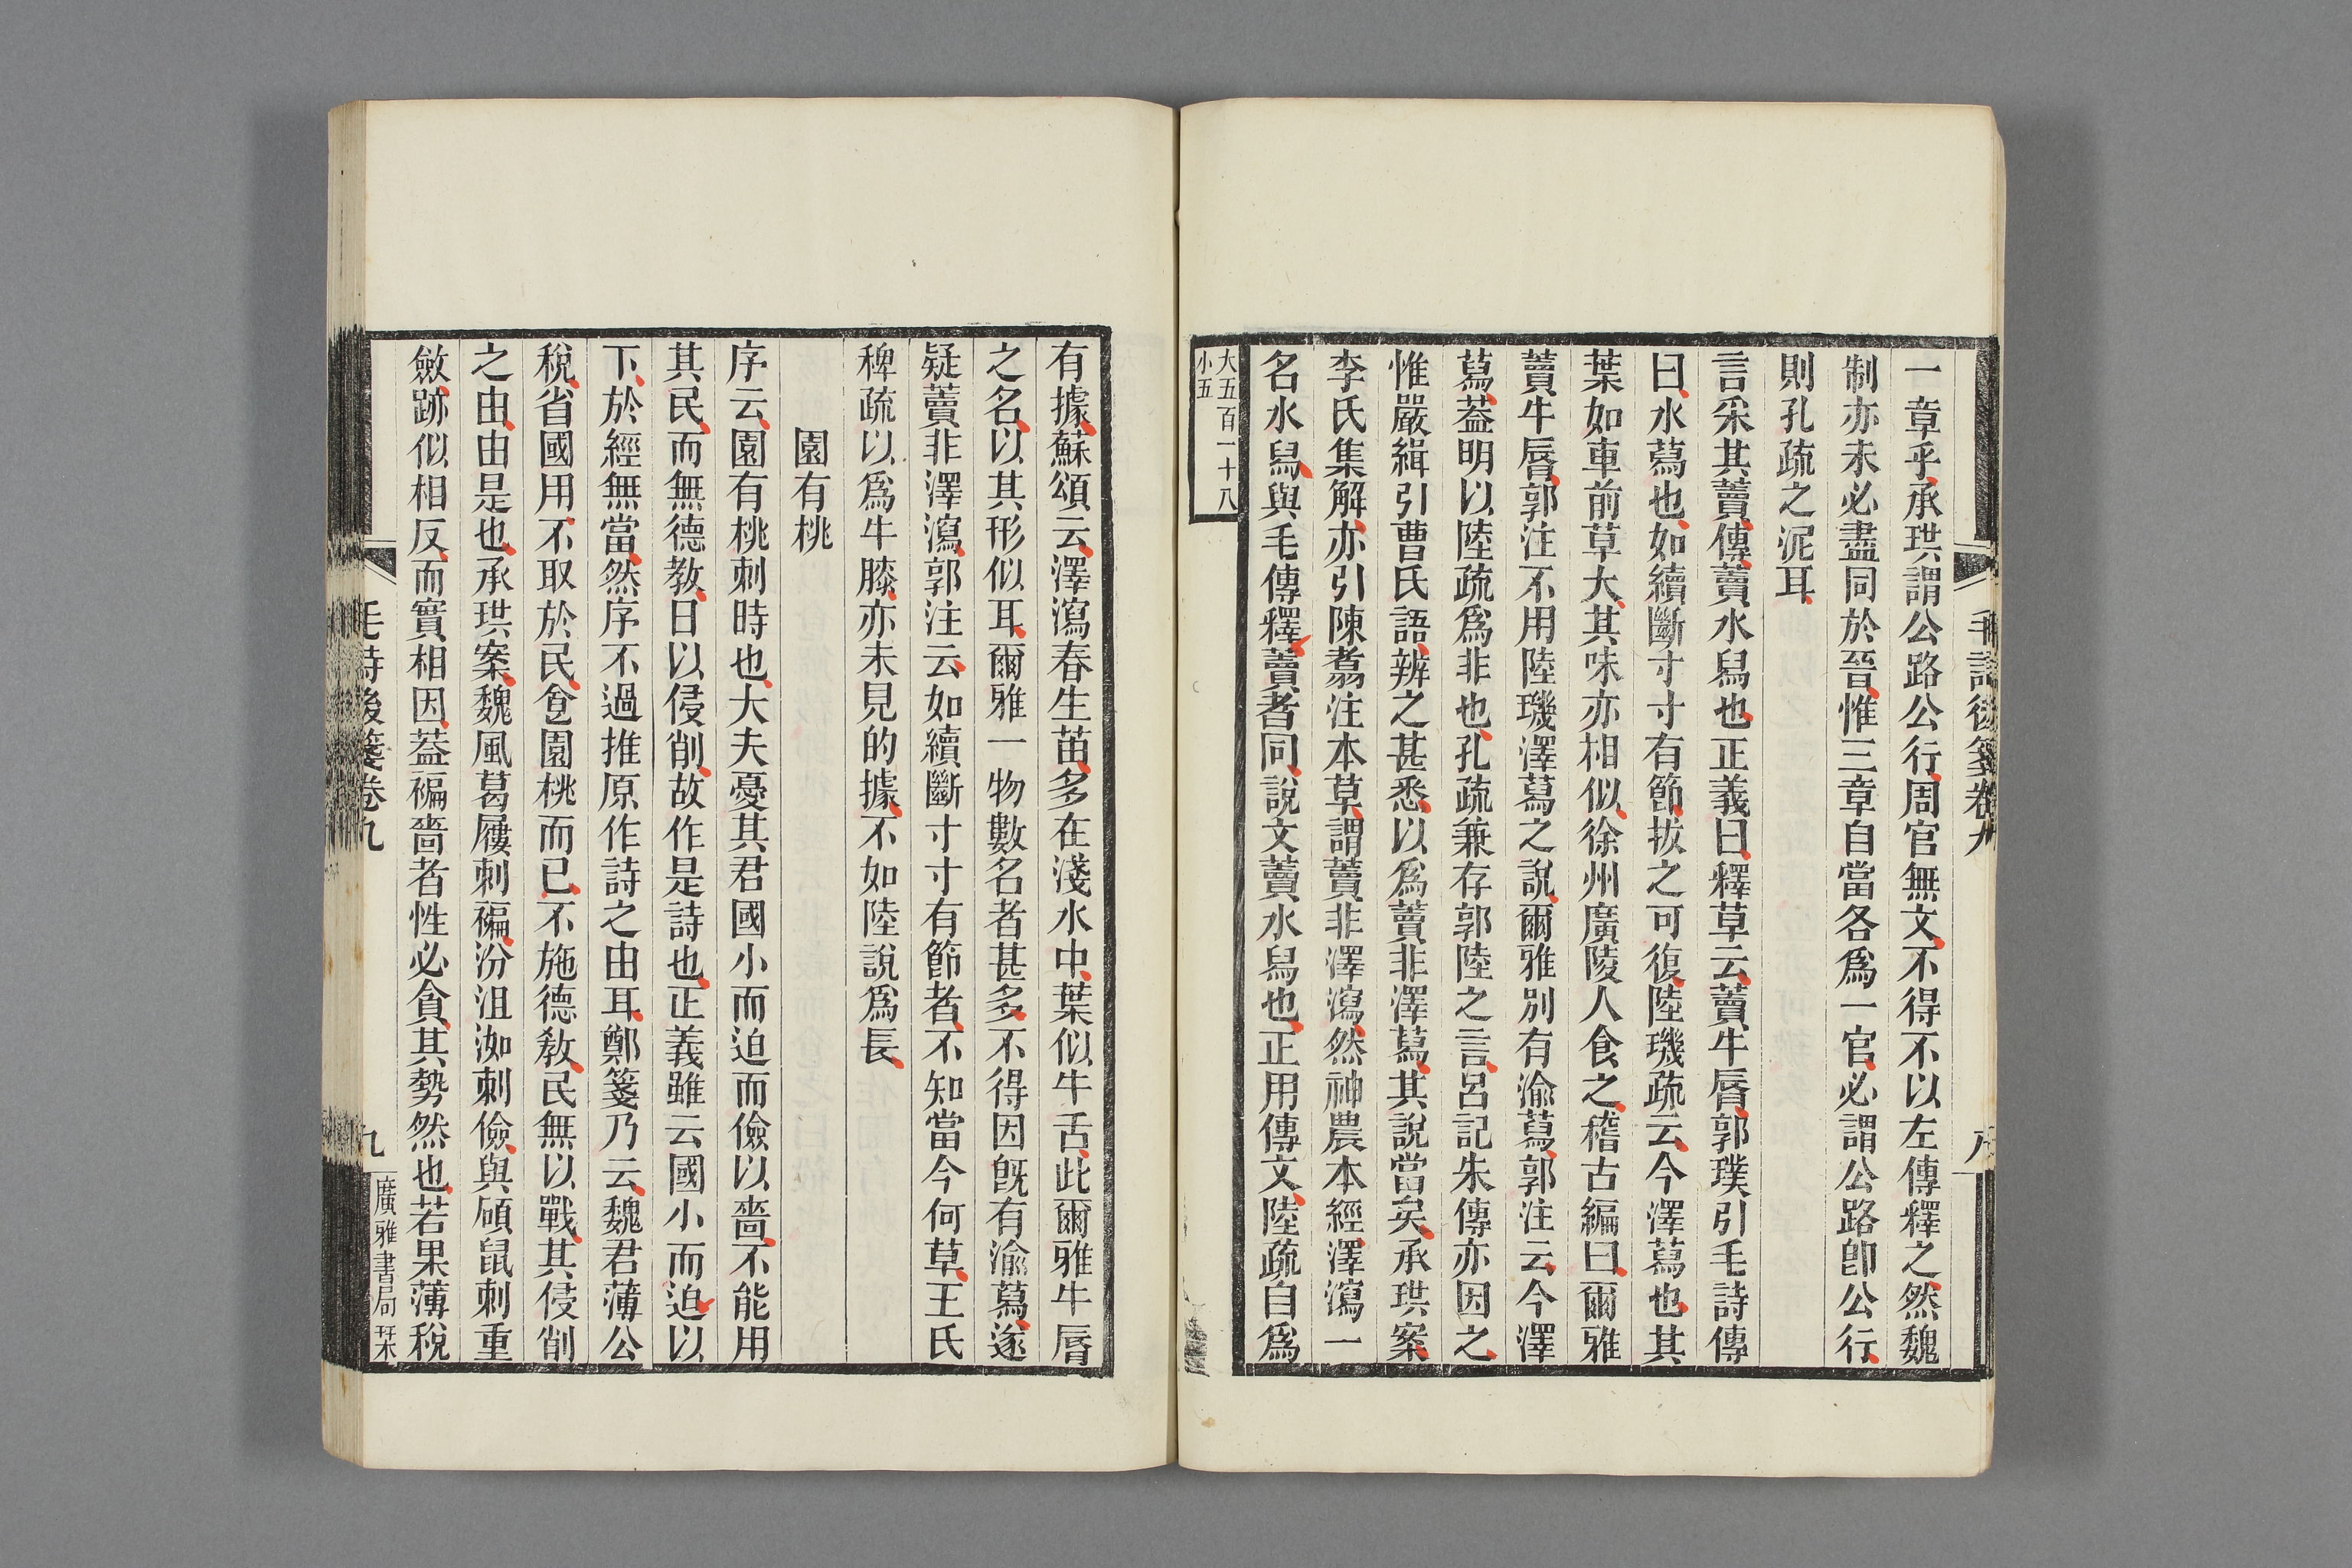 毛詩後箋卷九
一章乎承珙謂公路公行周官無文不得不以左傳釋之然魏
制亦未必盡同於晉惟三章自當各爲一官必謂公路卽公行
則孔疏之泥耳
言采其藚傳藚水舄也正義曰釋草云藚牛脣郭璞引毛詩傳
曰水蕮也如續斷寸寸有節拔之可復陸璣疏云今澤蕮也其
葉如車前草大其味亦相似徐州廣陵人食之稽古編曰爾雅
藚牛脣郭注不用陸璣澤蕮之說爾雅別有渝蕮郭注云今澤
蕮葢明以陸疏爲非也孔疏兼存郭陸之言呂記朱傳亦因之
惟嚴緝引曹氏語辨之甚悉以爲藚非澤蕮其說當矣承珙案
李氏集解亦引陳翥注本草謂藚非澤瀉然神農本經澤瀉一
名水舄與毛傳釋藚者同說文藚水舄也正用傳文陸疏自爲
大五百一十八
小五
有據蘇頌云澤瀉春生苗多在淺水中葉似牛舌此爾雅牛脣
之名以其形似耳爾雅一物數名者甚多不得因旣有渝蕮遂
疑藚非澤瀉郭注云如續斷寸寸有節者不知當今何草王氏
稗疏以爲牛膝亦未見的據不如陸說爲長
園有桃
序云園有桃刺時也大夫憂其君國小而迫而儉以嗇不能用
其民而無德教日以侵削故作是詩也正義雖云國小而迫以
下於經無當然序不過推原作詩之由耳鄭箋乃云魏君薄公
稅省國用不取於民食園桃而已不施德教民無以戰其侵削
之由由是也承珙案魏風葛屨刺褊汾沮洳刺儉與碩鼠刺重
斂跡似相反而實相因葢褊嗇者性必貪其勢然也若果薄稅
毛詩後箋卷九
九
廣雅書局栞